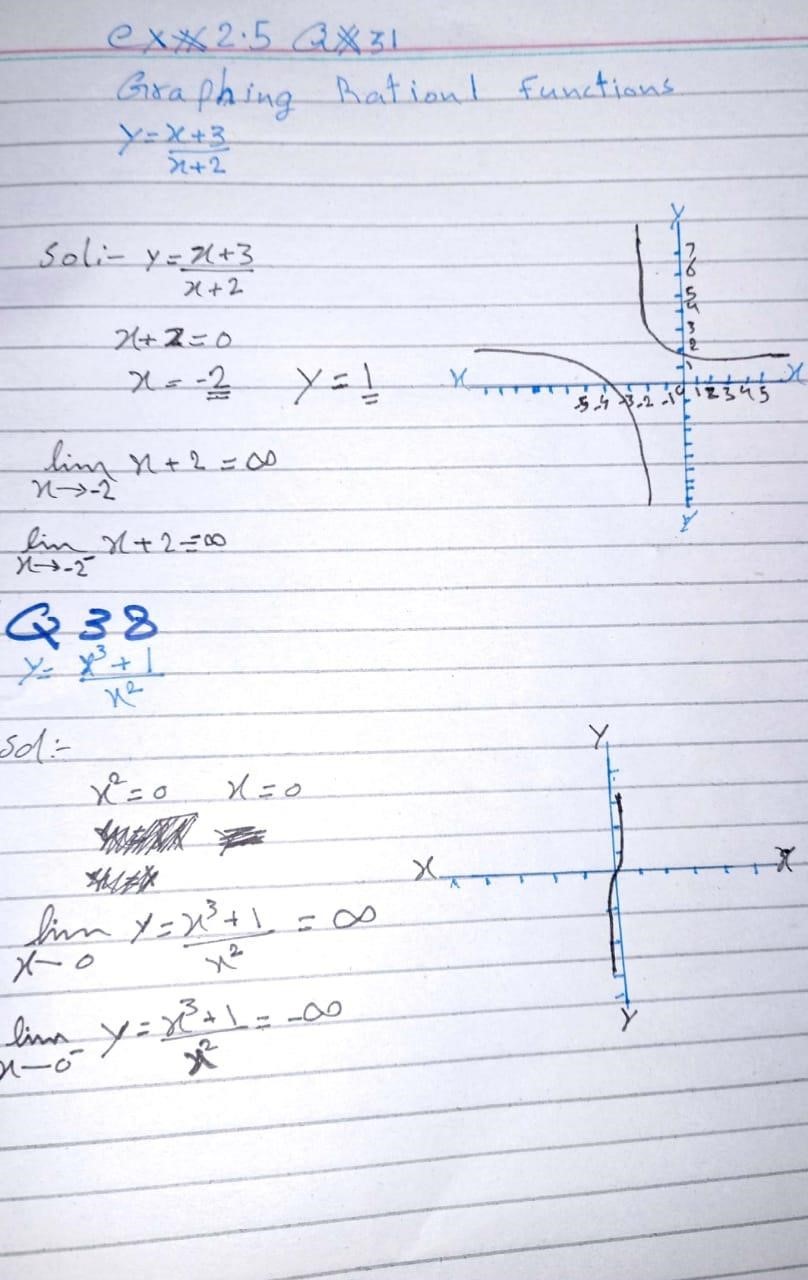 ex 2.5 Q 31
Graphing Rationl functions
y = x+3
x+2
Sol:- y = x+3
x+2
x+2=0
x = -2 y = 1
lim x+2 = ∞
x→-2
lim x+2 = ∞
x→-2⁻
Y
7
6
5
4
3
2
1
X X
-5 -4 -3 -2 -1 0 1 2 3 4 5
Y
Q 38
y = x³ + 1
x²
Sol:-
x² = 0 x = 0
lim y = x³+1 = ∞
x→0 x²
lim y = x³+1 = -∞
x→0⁻ x²
Y
X X
Y